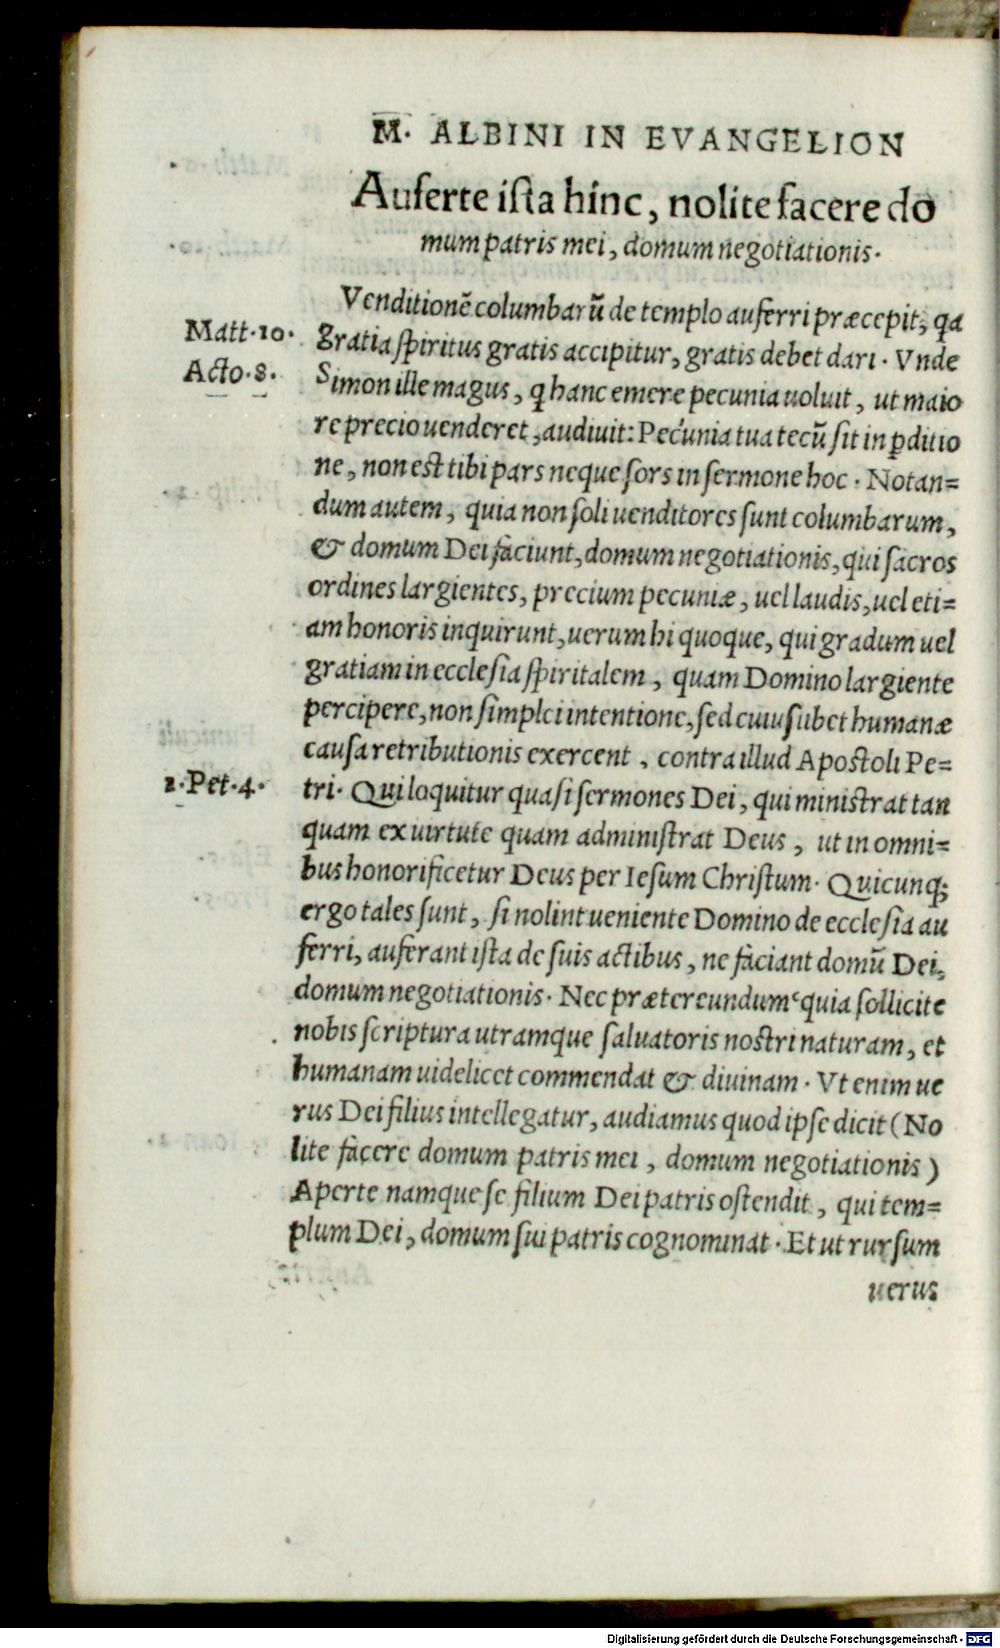 M. ALBINI IN EVANGELION
Auferte iſta hinc, nolite facere do
mum patris mei, domum negotiationis.
Venditionē columbarū de templo auferri præcepit, qa
Matt. 10. gratia ſpiritus gratis accipitur, gratis debet dari. Vnde
Acto. 8. Simon ille magus, q hanc emere pecunia uoluit, ut maio
re precio uenderet, audiuit: Pecunia tua tecū ſit in ꝑditio
ne, non est tibi pars neque ſors in ſermone hoc. Notan=
dum autem, quia non ſoli uenditores ſunt columbarum,
& domum Dei faciunt, domum negotiationis, qui ſacros
ordines largientes, precium pecuniæ, uel laudis, uel eti=
am honoris inquirunt, uerum hi quoque, qui gradum uel
gratiam in eccleſia ſpiritalem, quam Domino largiente
percipere, non ſimplci intentione, ſed cuiuſlibet humanæ
cauſa retributionis exercent, contra illud Apostoli Pe=
2. Pet. 4. tri. Qui loquitur quaſi ſermones Dei, qui ministrat tan
quam ex uirtute quam adminiſtrat Deus, ut in omni=
bus honorificetur Deus per Ieſum Chriſtum. Quicunq;
ergo tales ſunt, ſi nolint ueniente Domino de eccleſia au
ferri, auferant iſta de ſuis actibus, ne faciant domū Dei,
domum negotiationis. Nec prætereundum quia ſollicite
nobis ſcriptura utramque ſaluatoris nostri naturam, et
humanam uidelicet commendat & diuinam. Vt enim ue
rus Dei filius intellegatur, audiamus quod ipſe dicit (No
lite facere domum patris mei, domum negotiationis)
Aperte namque ſe filium Dei patris oſtendit, qui tem=
plum Dei, domum ſui patris cognominat. Et ut rurſum
uerus
Digitalisierung gefördert durch die Deutsche Forschungsgemeinschaft - DFG